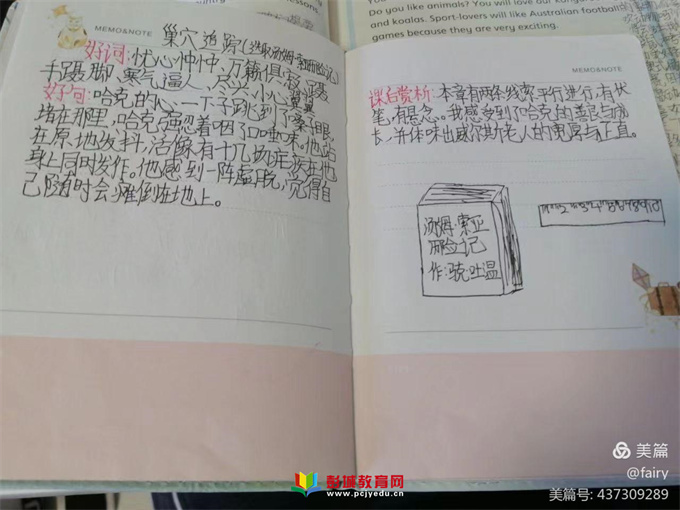 MEMO&NOTE
巢穴追踪(选取汤姆·索亚历险记)
好词:忧心忡忡、万籁俱寂、蹑
手蹑脚、寒气逼人、小心翼翼
好句:哈克的心一下子跳到了嗓子眼
堵在那里,哈克强忍着咽了口唾沫。他站
在原地发抖,活像有十几次疟疾在他
身上同时发作。他感到一阵虚脱,觉得自
己随时会瘫倒在地上。
Do you like animals? You will love our
and koalas. Sport-lovers will like Australian football
games because they are very exciting.
MEMO&NOTE
课后赏析:本章有两条线索平行进行,有伏
笔,有悬念。我感受到了哈克的善良与成
长,并体味出威尔斯老人的宽厚与正直。
汤姆·索亚
历险记
作:马克·吐温
彭城教育网
www.pcjyedu.cn
美篇
@fairy
美篇号: 437309289